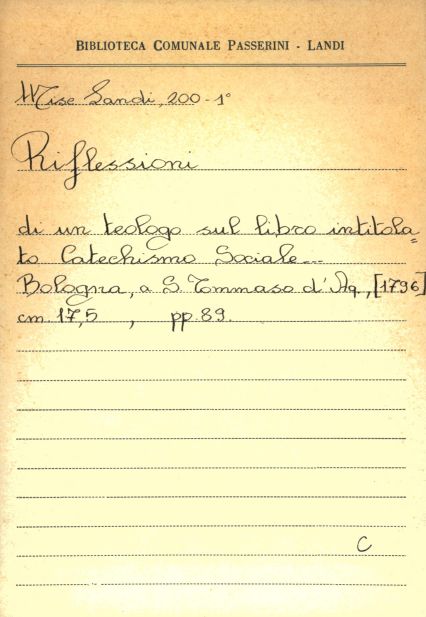 BIBLIOTECA COMUNALE PASSERINI - LANDI
Misc Landi, 200-1°
Riflessioni
di un teologo sul libro intitola=
to Catechismo Sociale...
Bologna, a S. Tommaso d'Aq., [1796]
cm. 17,5 , pp. 89.
C